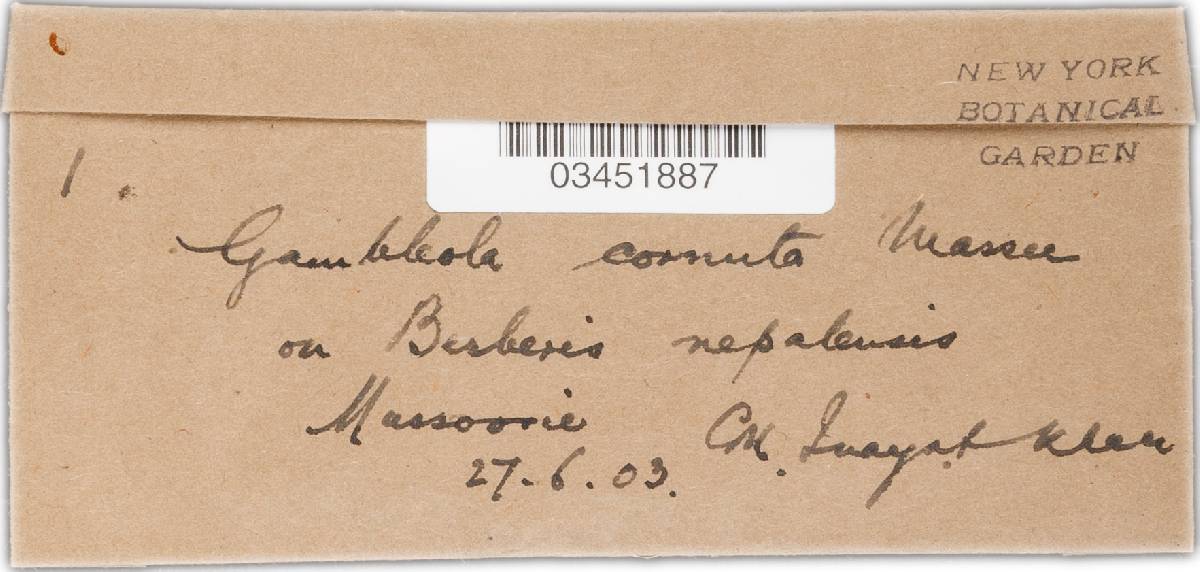 NEW YORK
BOTANICAL
GARDEN
03451887
1.
Gambleola cornuta Massee
on Berberis nepalensis
Mussoorie Ch. Inayat Khan
27.6.03.